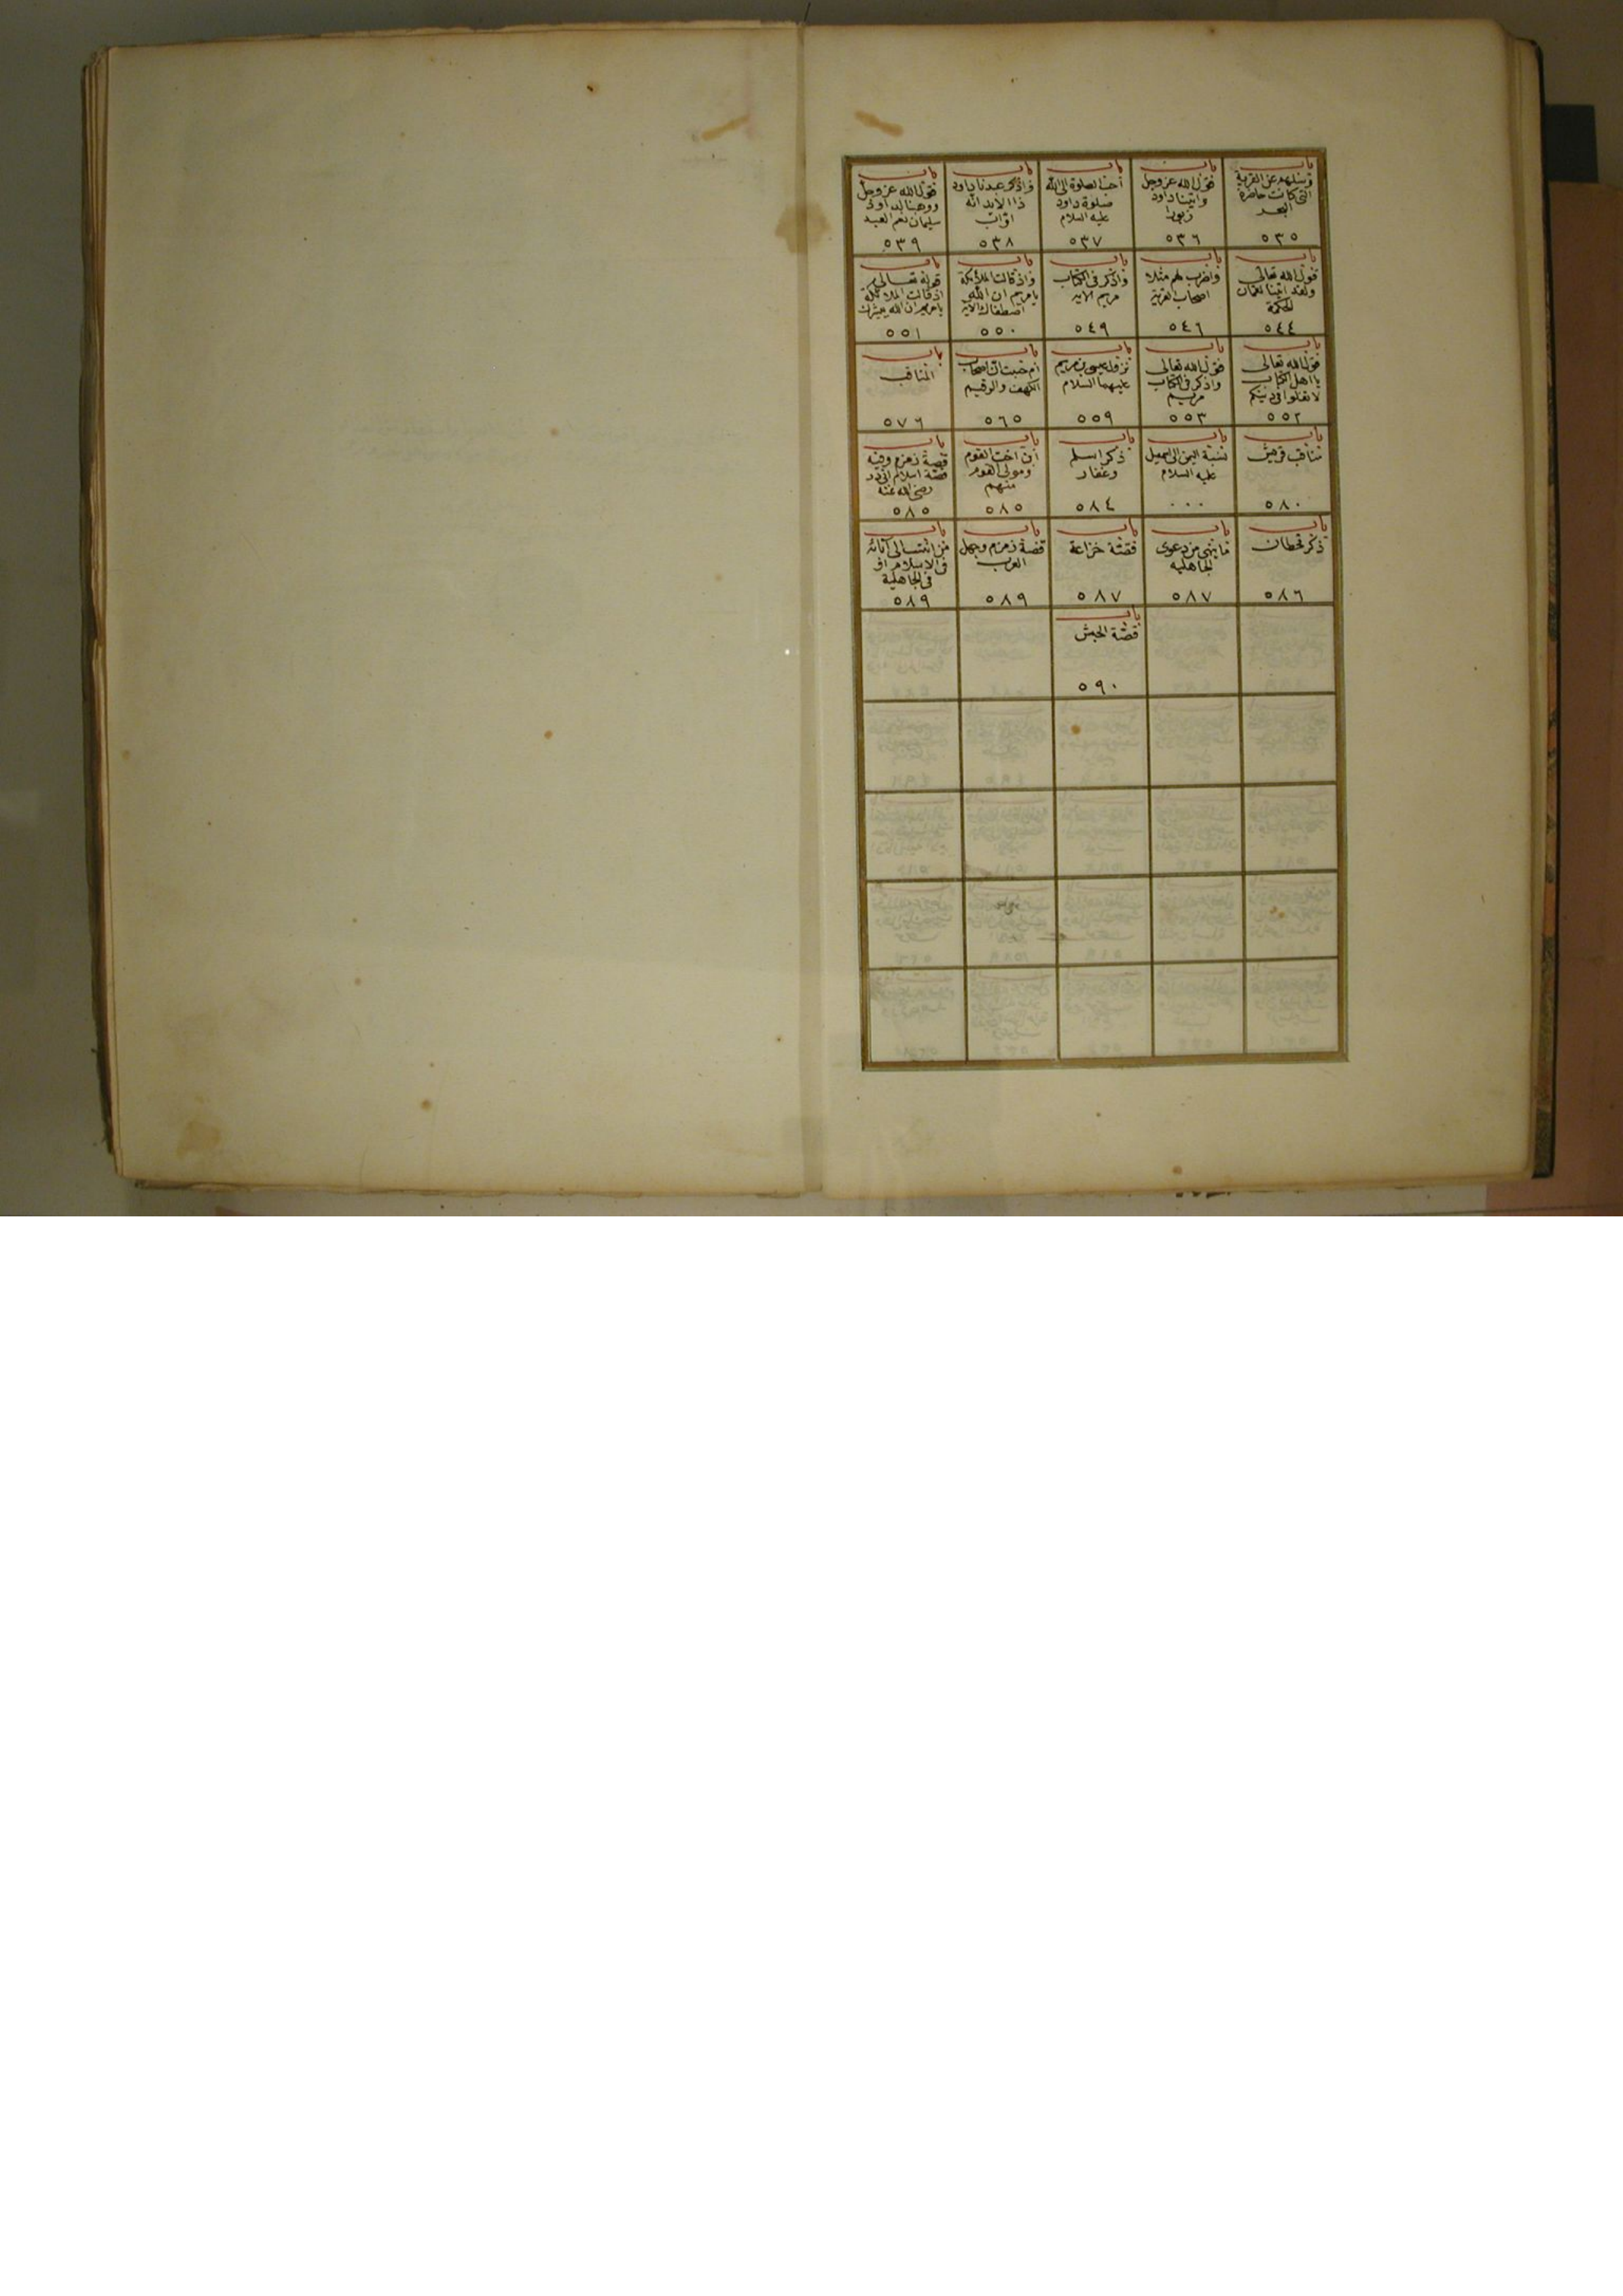 باب
وسئلهم عن القرية
التى كانت حاضرة
البحر
٥٣٥
باب
قول الله عز وجل
واتينا داود
زبورا
٥٣٦
باب
احب الصلوة الى الله
صلوة داود
عليه السلام
٥٣٧
باب
واذكر عبدنا داود
ذا الايد انه
اواب
٥٣٨
باب
قول الله عز وجل
ووهبنا لداود
سليمان نعم العبد
٥٣٩
باب
قول الله تعالى
ولقد اتينا لقمان
الحكمة
٥٤٤
باب
واضرب لهم مثلا
اصحاب القرية
٥٤٦
باب
واذكر فى الكتاب
مريم الاية
٥٤٩
باب
واذ قالت الملائكة
يا مريم ان الله
اصطفاك الاية
٥٥٠
باب
قوله تعالى
اذ قالت الملائكة
يا مريم ان الله يبشرك
٥٥١
باب
قول الله تعالى
يا اهل الكتاب
لا تغلوا فى دينكم
٥٥٢
باب
قول الله تعالى
واذكر فى الكتاب
مريم
٥٥٣
باب
نزول عيسى بن مريم
عليهما السلام
٥٥٩
باب
ام حسبت ان اصحاب
الكهف والرقيم
٥٦٥
باب
المناقب
٥٧٦
باب
مناقب قريش
٥٨٠
باب
نسبة اليمن الى اسمعيل
عليه السلام
٠٠٠
باب
ذكر اسلم
وغفار
٥٨٤
باب
ابن اخت القوم
ومولى القوم
منهم
٥٨٥
باب
قصة زمزم وفيه
قصة اسلام ابى ذر
رضى الله عنه
٥٨٥
باب
ذكر قحطان
٥٨٦
باب
ما ينهى من دعوى
الجاهلية
٥٨٧
باب
قصة خزاعة
٥٨٧
باب
قصة زمزم وجهل
العرب
٥٨٩
باب
من انتسب الى آبائه
فى الاسلام او
فى الجاهلية
٥٨٩
باب
قصة الحبش
٥٩٠